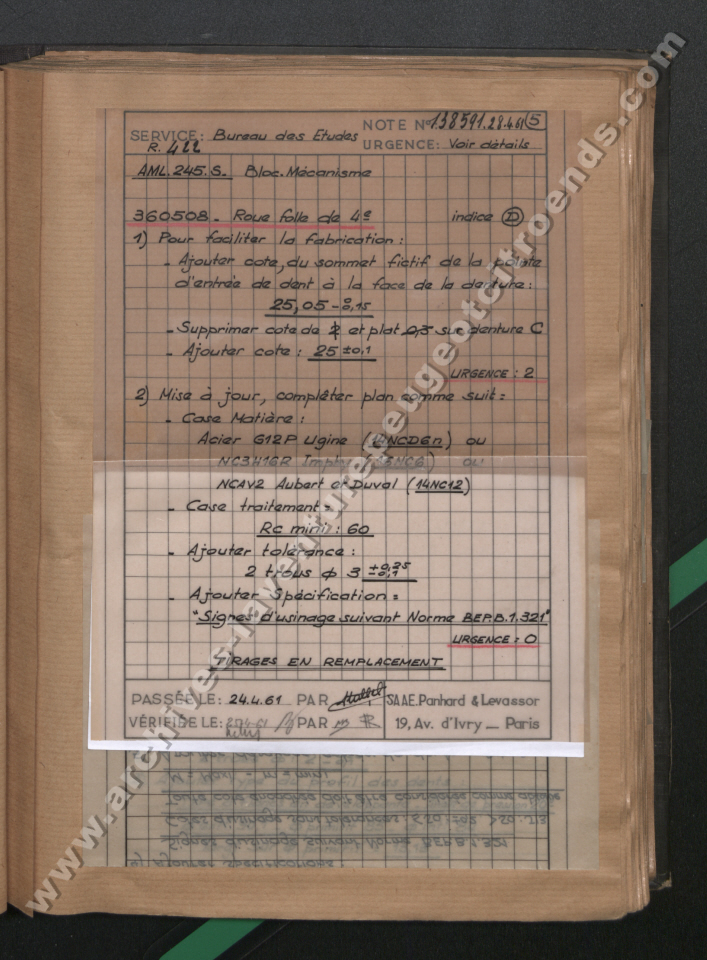 NOTE N° 138591.28.4.61 5
SERVICE: Bureau des Etudes
R. 422
URGENCE: Voir détails
AML.245.S. Bloc.Mécanisme
360508_ Roue folle de 4e indice D
1) Pour faciliter la fabrication:
- Ajouter cote, du sommet fictif de la pointe
d'entrée de dent à la face de la denture:
25,05 -0 0,15
- Supprimer cote de 2 et plat 0,5 sur denture C
- Ajouter cote: 25 ±0,1
URGENCE: 2
2) Mise à jour, complèter plan comme suit:
- Case Matière:
Acier G12P Ugine (14NCD6n) ou
NC3H16R Imphy ou
NCAV2 Aubert et Duval (14NC12)
- Case traitement:
Rc mini: 60
- Ajouter tolérance:
2 trous ϕ 3 +0,25 -0,1
- Ajouter Spécification:
"Signes d'usinage suivant Norme BEP.B.1.321"
URGENCE: 0
TIRAGES EN REMPLACEMENT
PASSÉE LE: 24.4.61 PAR SAAE.Panhard & Levassor
VÉRIFIÉE LE: PAR 19, Av. d'Ivry _ Paris
Toute cote encadrée doit être considérée comme
Cotes d'usinage sans tolérances
Signes d'usinage suivant Norme BEP.B.1.321
4) Ajouter spécifications:
www.archives-laventure-peugeotcitroends.com